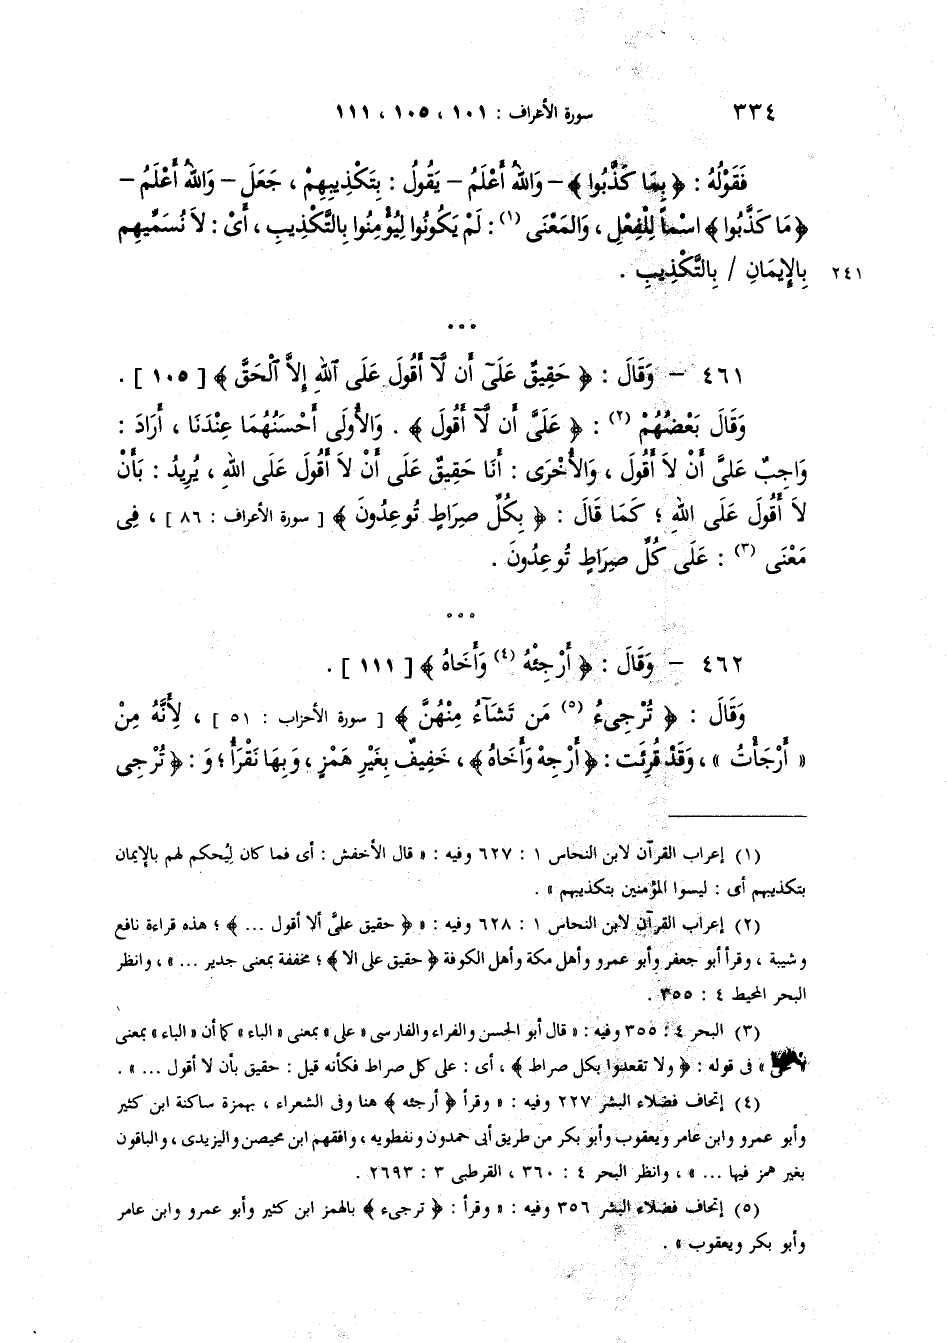 ٣٣٤ سورة الأعراف : ١٠١ ، ١٠٥ ، ١١١
فَقَوْلُهُ : ﴿ بِمَا كَذَّبُوا ﴾ – وَاللهُ أَعْلَمُ – يَقُولُ : بِتَكْذِيبِهِمْ ، جَعَلَ – وَاللهُ أَعْلَمُ –
﴿ مَا كَذَّبُوا ﴾ اسْماً لِلْفِعْلِ ، وَالمَعْنَى (١) : لَمْ يَكُونُوا لِيُؤْمِنُوا بِالتَّكْذِيبِ ، أَىْ : لاَ نُسَمِّيهِم
٢٤١ بِالإِيمَانِ / بِالتَّكْذِيبِ .
•••
٤٦١ – وَقَالَ : ﴿ حَقِيقٌ عَلَىٓ أَن لَّآ أَقُولَ عَلَى ٱللهِ إِلاَّ ٱلْحَقَّ ﴾ [ ١٠٥ ] .
وَقَالَ بَعْضُهُمْ (٢) : ﴿ عَلَىَّ أَن لَّآ أَقُولَ ﴾ . وَالأُولَى أَحْسَنُهُمَا عِنْدَنَا ، أَرَادَ :
وَاجِبٌ عَلىَّ أَنْ لاَ أَقُولَ ، وَالأُخْرَى : أَنَا حَقِيقٌ عَلَى أَنْ لاَ أَقُولَ عَلَى اللهِ ، يُرِيدُ : بَأَنْ
لاَ أَقُولَ عَلَى اللهِ ؛ كَمَا قَالَ : ﴿ بِكُلِّ صِرَاطٍ تُوعِدُونَ ﴾ [ سورة الأعراف : ٨٦ ] ، فِى
مَعْنَى (٣) : عَلَى كُلِّ صِرَاطٍ تُوعِدُونَ .
•••
٤٦٢ – وَقَالَ : ﴿ أَرْجِئْهُ (٤) وَأَخَاهُ ﴾ [ ١١١ ] .
وَقَالَ : ﴿ تُرْجِىءُ (٥) مَن تَشَآءُ مِنْهُنَّ ﴾ [ سورة الأحزاب : ٥١ ] ، لِأَنَّهُ مِنْ
« أَرْجَأْتُ » ، وَقَدْ قُرِئَت : ﴿ أَرْجِهْ وَأَخَاهُ ﴾ ، خَفِيفٌ بِغَيْرِ هَمْزٍ ، وَبِهَا نَقْرَأُ ؛ وَ : ﴿ تُرْجِى
(١) إعراب القرآن لابن النحاس ١ : ٦٢٧ وفيه : « قال الأخفش : أى فما كان لِيُحكم لهم بالإيمان
بتكذيبهم أى : ليسوا المؤمنين بتكذيبهم » .
(٢) إعراب القرآن لابن النحاس ١ : ٦٢٨ وفيه : « ﴿ حقيق علىَّ ألا أقول ... ﴾ ؛ هذه قراءة نافع
وشيبة ، وقرأ أبو جعفر وأبو عمرو وأهل مكة وأهل الكوفة ﴿ حقيق على الا ﴾ ؛ مخففة بمعنى جدير ... » ، وانظر
البحر المحيط ٤ : ٣٥٥ .
(٣) البحر ٤ : ٣٥٥ وفيه : « قال أبو الحسن والفراء والفارسى « على » بمعنى « الباء » كما أن « الباء » بمعنى
« على » فى قوله : ﴿ ولا تقعدوا بكل صراط ﴾ ، أى : على كل صراط فكأنه قيل : حقيق بأن لا أقول ... » .
(٤) إتحاف فضلاء البشر ٢٢٧ وفيه : « وقرأ ﴿ أرجئه ﴾ هنا وفى الشعراء ، بهمزة ساكنة ابن كثير
وأبو عمرو وابن عامر ويعقوب وأبو بكر من طريق أبى حمدون ونفطويه ، وافقهم ابن محيصن واليزيدى ، والباقون
بغير همز فيها ... » ، وانظر البحر ٤ : ٣٦٠ ، القرطبى ٣ : ٢٦٩٣ .
(٥) إتحاف فضلاء البشر ٣٥٦ وفيه : « وقرأ : ﴿ ترجىء ﴾ بالهمز ابن كثير وأبو عمرو وابن عامر
وأبو بكر ويعقوب » .